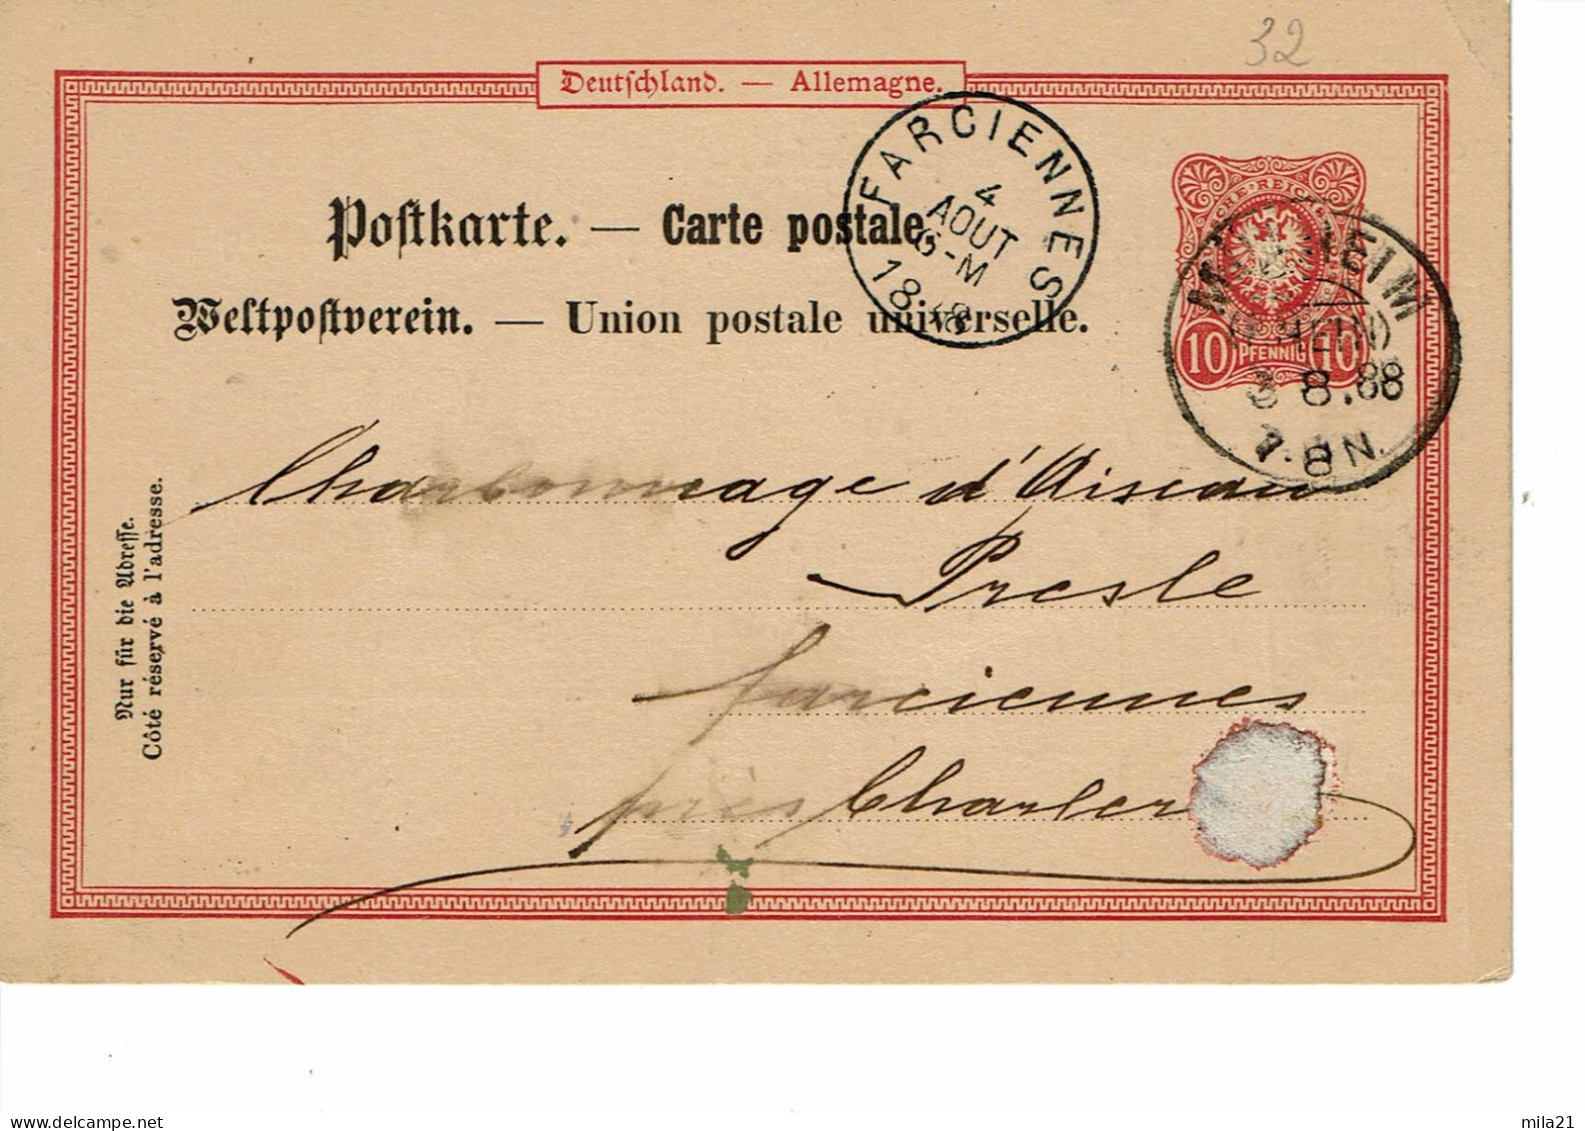 32
Deutschland. — Allemagne.
Postkarte. — Carte postale.
Weltpostverein. — Union postale universelle.
FARCIENNES
4
AOUT
6-M
18
REICH
10 PFENNIG 10
(RHEIN)
3 8.88
7-8N.
Charbonnage d'Aiseau
Presle
farciennes
près Charler
Nur für die Adresse.
Côté réservé à l'adresse.
delcampe.net
mila21